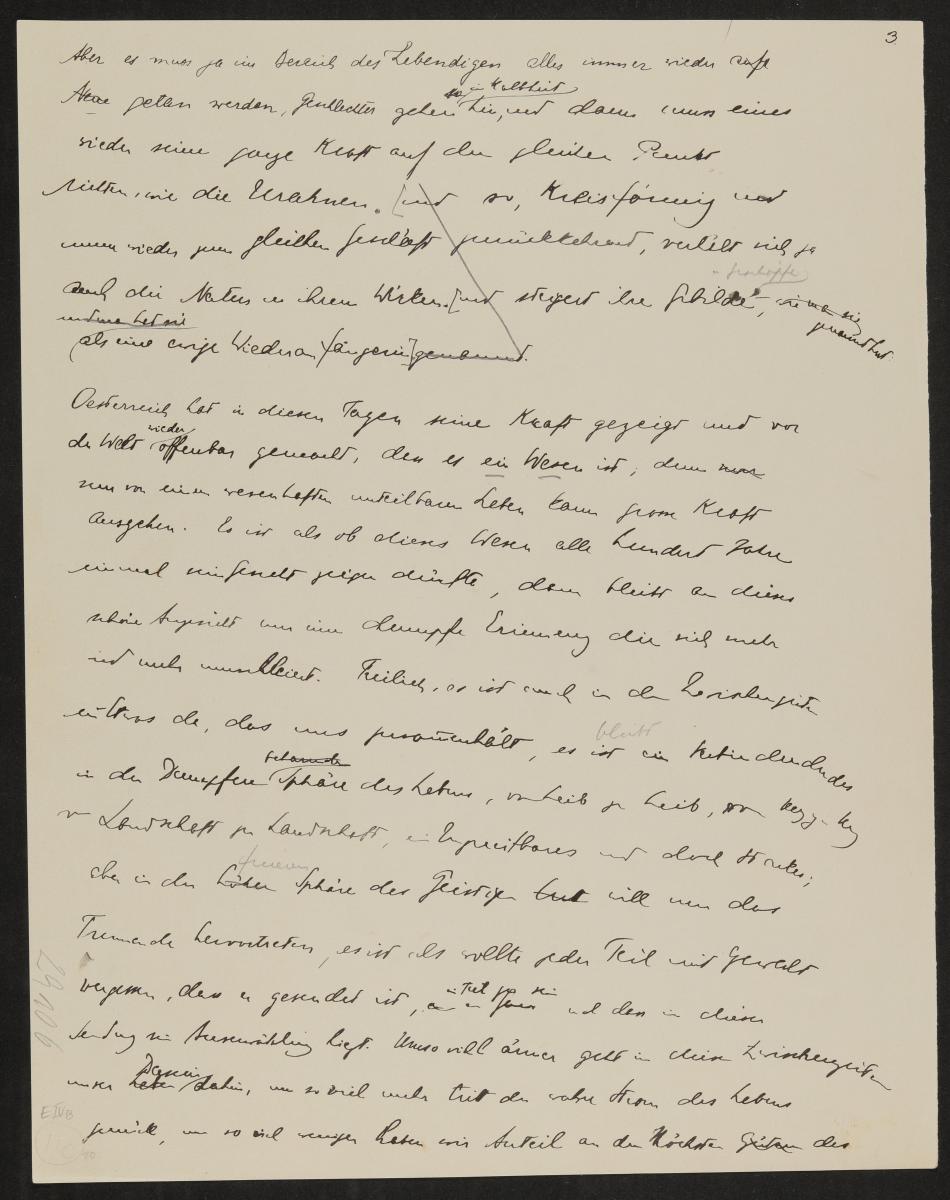 3
Aber es muss ja im Bereich des Lebendigen alles immer wieder aufs
Neue getan werden, Geschlechter gehen in Kaltheit hin, und dann muss eines
wieder seine ganze Kraft auf den gleichen Punkt
richten, wie die Urahnen. [und so, Kreisförmig und
immer wieder zum gleichen Geschäft zurückkehrend, verhält sich ja
auch die Natur in ihrem Wirken. [und steigert ihre Gebilde, wie man sie
Geschöpfe
genannt hat.
und man hat sie
(als eine ewige Wiederanfängerin] genannt.
Oesterreich hat in diesen Tagen seine Kraft gezeigt und vor
der Welt wieder offenbar gemacht, dass es ein Wesen ist; denn nur
nur von einem wesenhaften unteilbaren Leben kann grosse Kraft
ausgehen. Es ist als ob dieses Wesen alle hundert Jahre
einmal sein Gesicht zeigen dürfte, dann bleibt an dieses
schöne Angesicht nur eine dumpfe Erinnerung die sich mehr
und mehr umschleiert. Freilich, es ist auch in den Zwischenzeiten
etwas da, das uns zusammenhält, es ist bleibt ein Verbindendes
in der Dumpfen Sphäre des Lebens, von Leib zu Leib, von Berg zu Berg
v Landschaft zu Landschaft, ein Ungreifbares und doch Starkes;
aber in der höhern freieren Sphäre des Geistigen tut will nun das
Trennende hervortreten, es ist als wollte jeder Teil mit Gewalt
vergessen, dass er gesendet ist, ein Teil zu sein und dass in dieser
Sendung die Auserwählung liegt. Umso viel ärmer geht in diesen Zwischenzeiten
unser Leben Dasein dahin, um so viel mehr tritt der wahre Strom des Lebens
zurück, um so viel weniger haben wir Anteil an den Höchsten Gütern des
E IV B